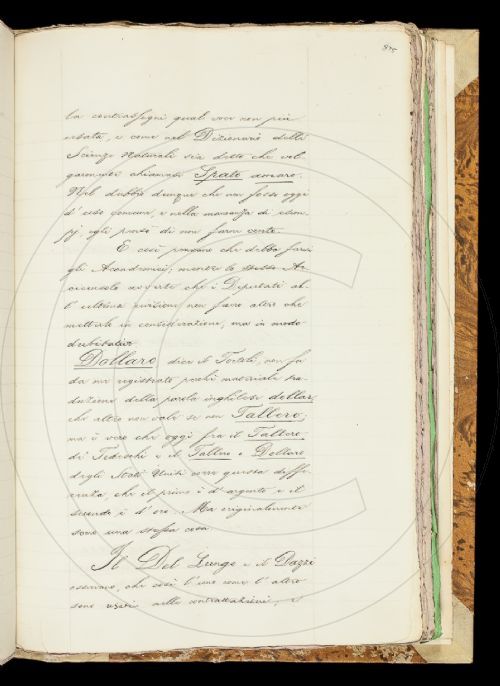 875
la contrassegni qual voce non più
usata, e come nel Dizionario delle
Scienze Naturali sia detto che vol-
garmente chiamasi Spato amaro.
Nel dubbio dunque che non fosse oggi
d'uso comune, e nella mancanza di esem-
pj, egli pensò di non farne conto.
E così pensano che debba farsi
gli Accademici; mentre lo stesso Ar-
ciconsolo avverte che i Deputati al-
l'ultima revisione non fanno altro che
metterle in considerazione, ma in modo
dubitativo.
Dollaro dice il Tortoli, non fu
da me registrato perchè materiale tra-
duzione della parola inghilese dollar,
che altro non vale se non Tallero;
ma è vero che oggi fra il Tallero
de' Tedeschi e il Tallero o Dollaro
degli Stati Uniti corre questa diffe-
renza, che il primo è d'argento e il
secondo è d'oro. Ma originalmente
sono una stessa cosa.
Il Del Lungo e il Dazzi
osservano, che così l'uno come l'altro
sono usati nelle contrattazioni, e